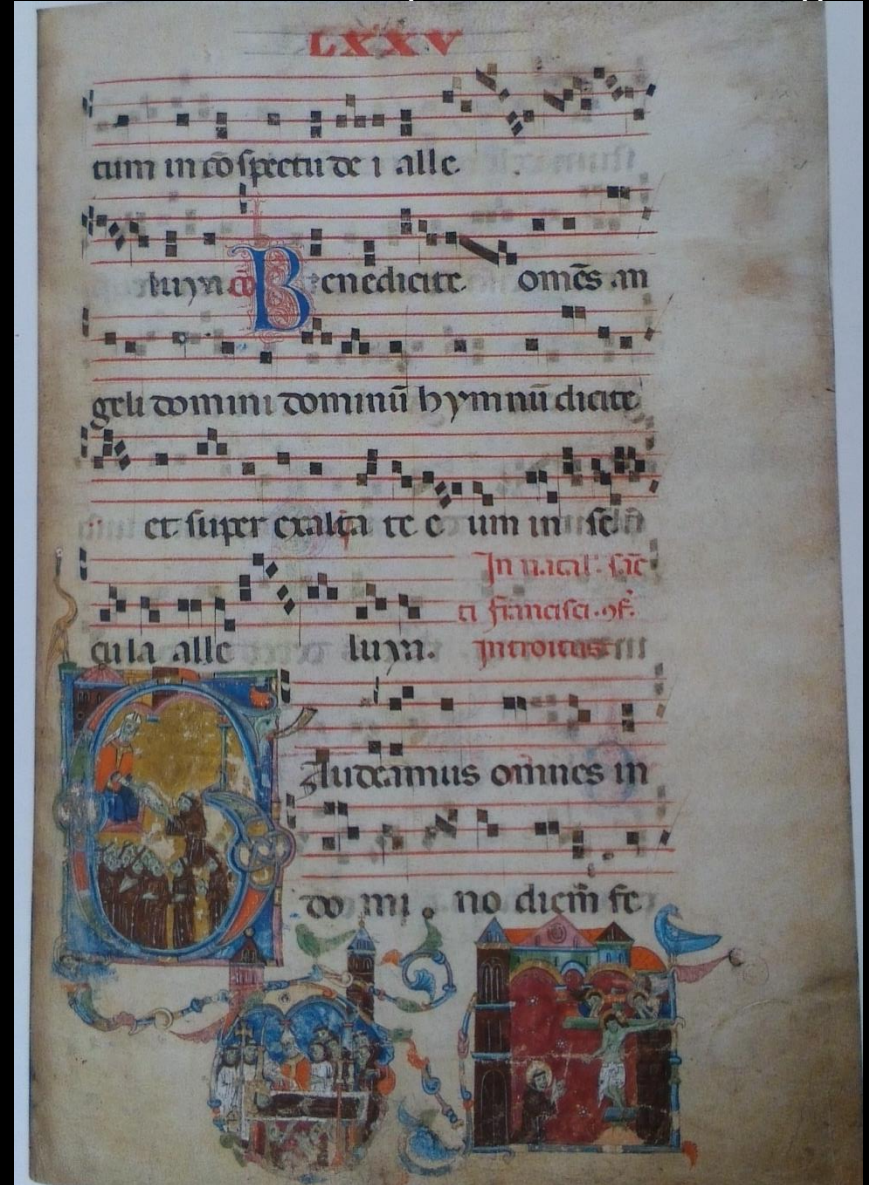 LXXV
tum in cō spectu de i alle
luya cō Benedicite omēs an
geli domini dominū hymnū dicite
et super exalta te e um in se
cula alle luya.
In natal' sāc
ti francisci ɔf.
Introitus
Gaudeamus omnes in
do mi no diem̄ fe